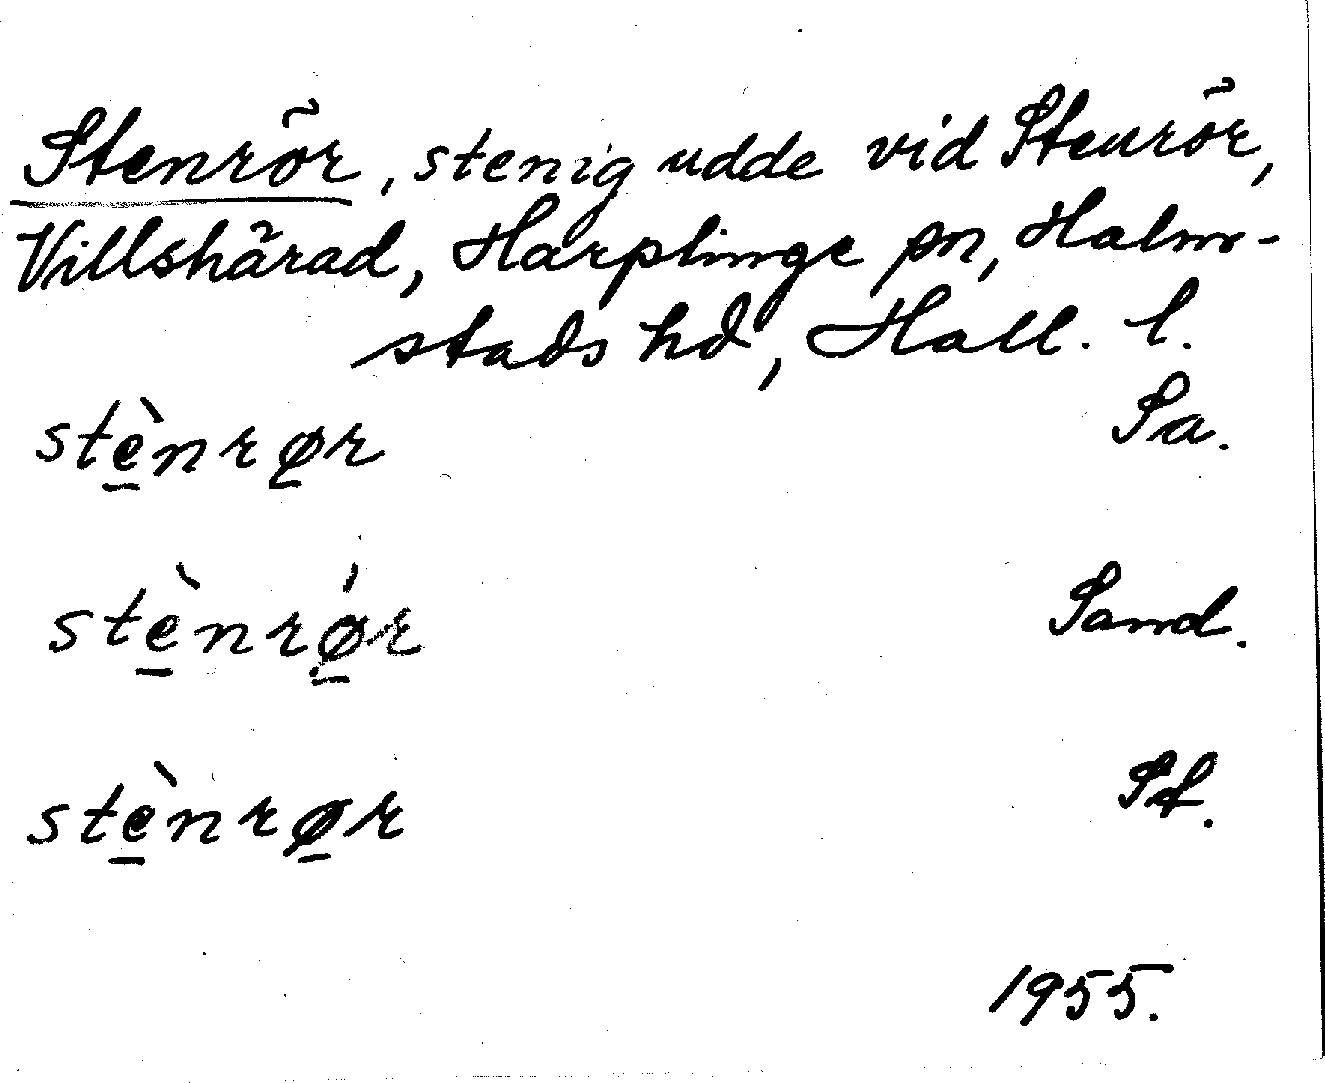 Stenrör, stenig udde vid Stenrör,
Villshärad, Harplinge sn, Halm-
stads hd, Hall. l.
stè̱nrø̱r Sa.
stè̱nrǿ̱r Sand.
stè̱nrø̱r Sf.
1955.